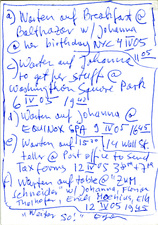 a) Warten auf Breakfast @
Balthazar w/ Johanna
@ her birthday NYC 4 IV 05
c) Warten auf Johanna 1105
to get her stuff @
Washington Square Park
6 IV 05 1945
d) Warten auf Johanna @
EQUINOX SPA 9 IV 05 1645
e) Warten auf 14 Wall St.
talk @ Post office to send
Tax forms 12 IV 05
f) Warten auf table @ "ZUM
Schneider" w/ Johanna, Florian
12 IV 05 1945
"Warten So!"